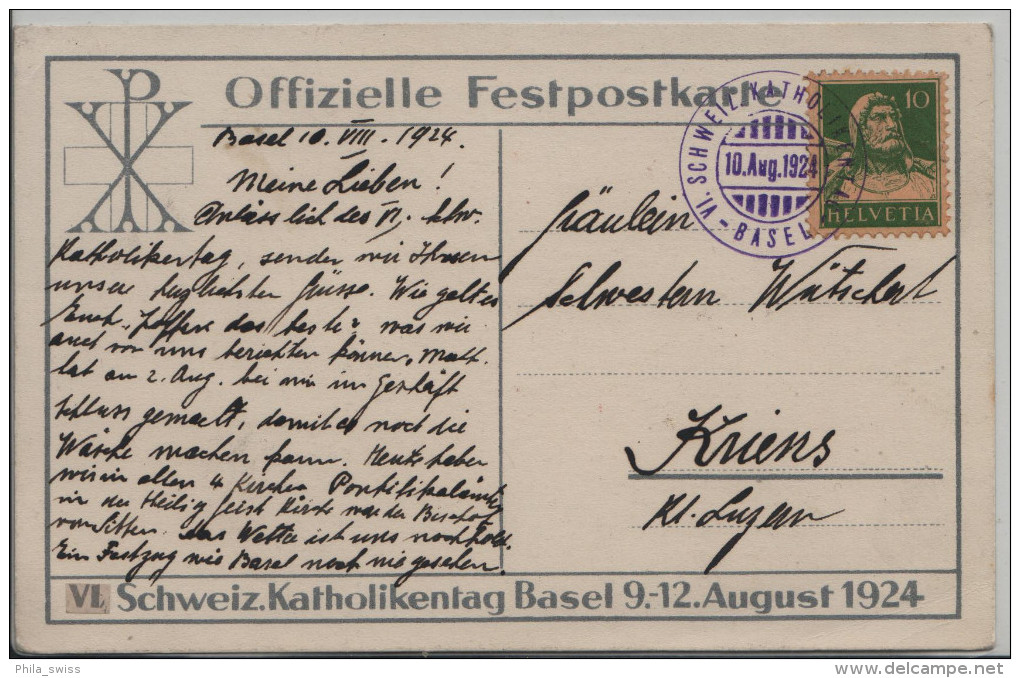 Offizielle Festpostkarte
VI. SCHWEIZ. KATHOLIKENTAG
10. Aug. 1924
- BASEL -
10
HELVETIA
Basel 10. VIII. 1924.
Meine Lieben!
Anlässlich des VI. schw.
Katholikentag, senden wir Ihnen
unsere herzlichsten Grüsse. Wie geht es
Euch, hoffen das beste, was wir
auch von uns berichten können.
hat am 2. Aug. bei mir im Geschäft
Schluss gemacht, damit es noch die
Wäsche machen kann. Heute haben
wir in allen 4 Kirchen Pontifikalämter
in der Heilig Geist Kirche war der Bischof
von Sitten. Das Wetter ist uns noch hold.
Ein Festzug wie Basel noch nie gesehen.
Fräulein
Schwestern Wütschert
Kriens
Kt. Luzern
VI. Schweiz. Katholikentag Basel 9.-12. August 1924
Phila_swiss
www.delcampe.net